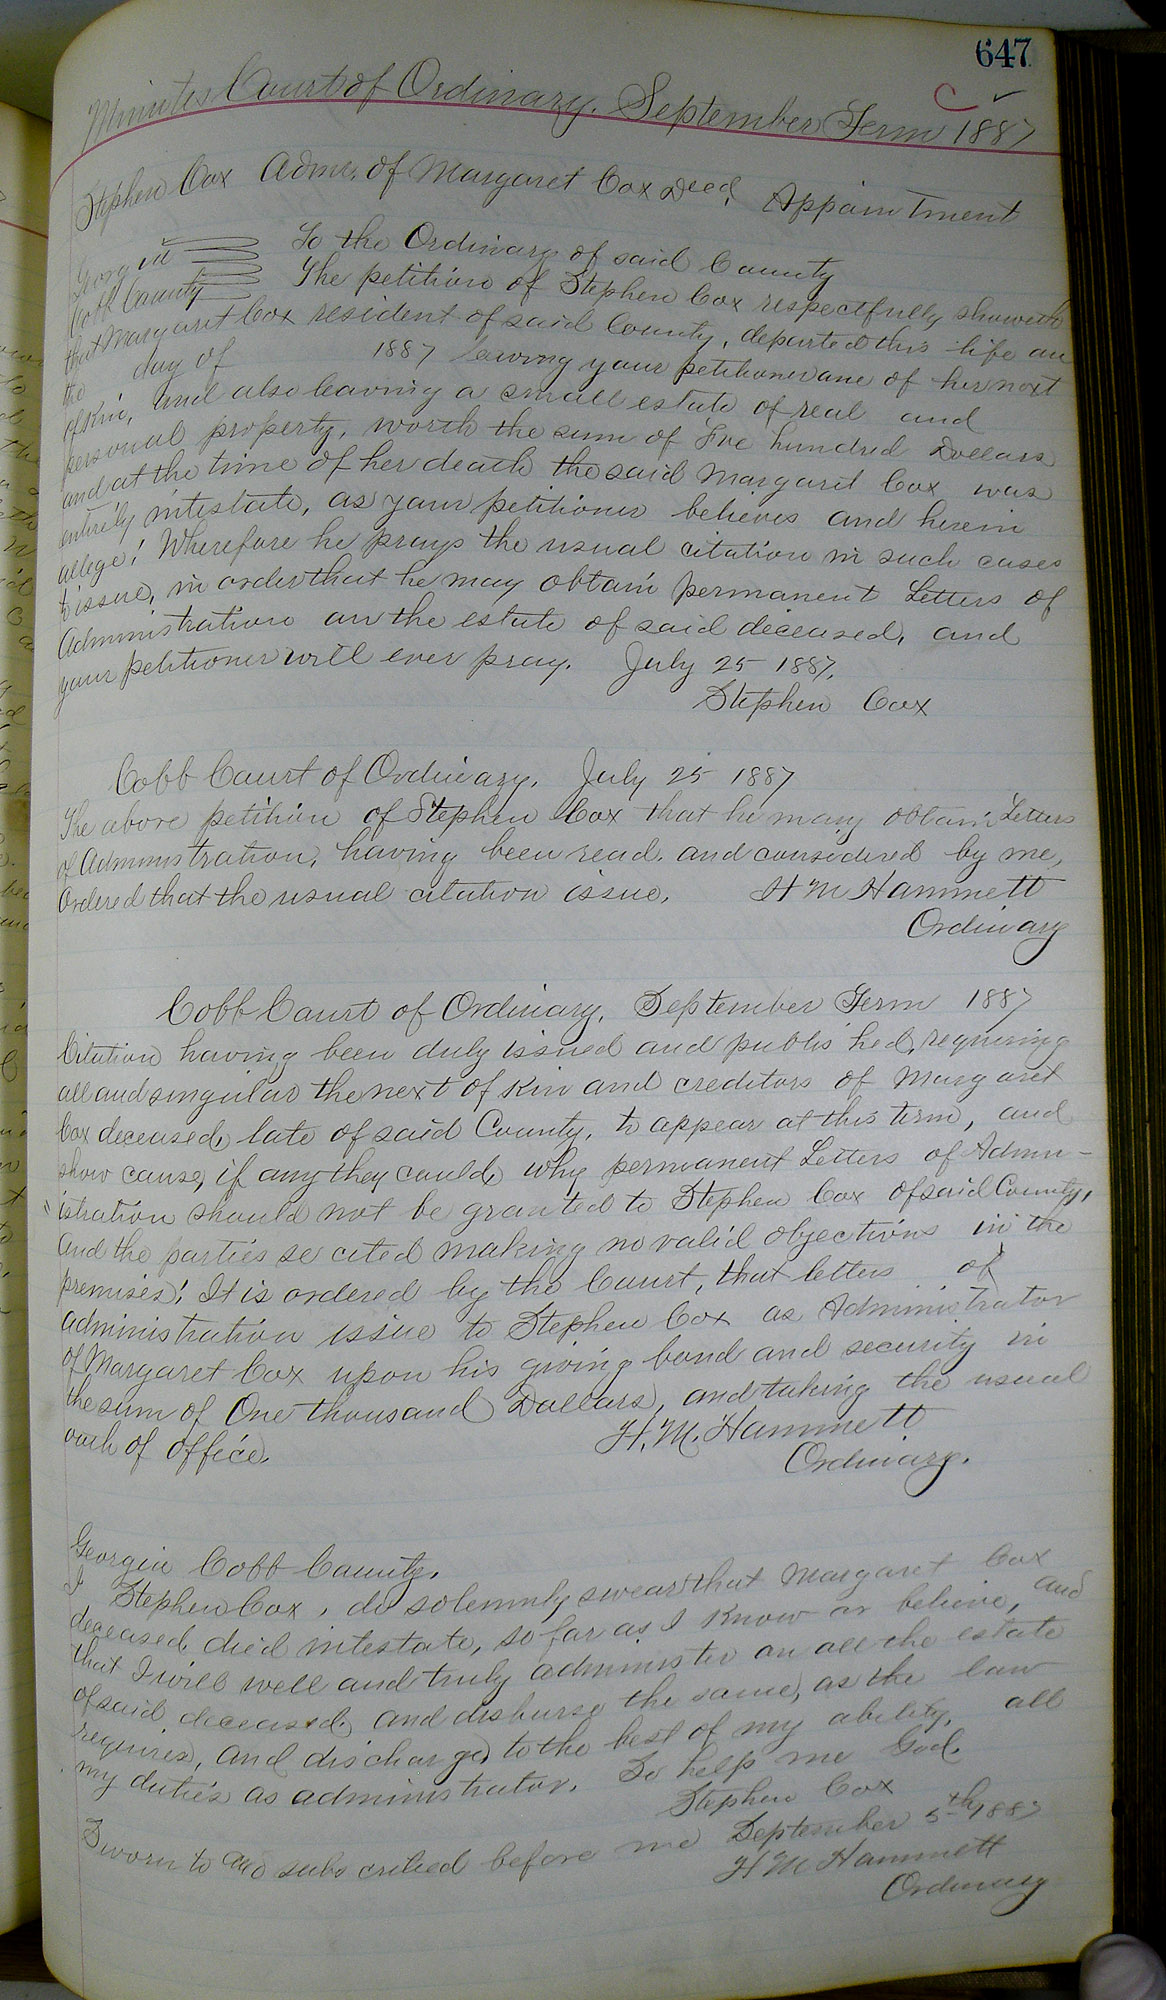 647
Minutes Court of Ordinary. September Term 1887
Stephen Cox Admr. of Margaret Cox Deed. Appointment
Georgia To the Ordinary of said County
Cobb County The petition of Stephen Cox respectfully showeth
that Margaret Cox resident of said County, departed this life on
the day of 1887 leaving your petitioner one of her next
of kin, and also leaving a small estate of real and
personal property, worth the sum of Five hundred Dollars
and at the time of her death the said Margaret Cox was
entirely intestate, as your petitioner believes and herein
allege! Wherefore he prays the usual citation in such cases
to issue, in order that he may obtain permanent Letters of
Administration on the estate of said deceased, and
your petitioner will ever pray. July 25 1887.
Stephen Cox
Cobb Court of Ordinary. July 25 1887
The above petition of Stephen Cox that he may obtain Letters
of Administration, having been read, and considered by me,
Ordered that the usual citation issue. H M Hammett
Ordinary
Cobb Court of Ordinary. September Term 1887
Citation having been duly issued and published, requiring
all and singular the next of kin and creditors of Margaret
Cox deceased, late of said County, to appear at this term, and
show cause, if any they could, why permanent Letters of Admin-
"istration should not be granted to Stephen Cox of said County,
and the parties so cited making no valid objections in the
premises! It is ordered by the Court, that letters of
administration issue to Stephen Cox as Administrator
of Margaret Cox upon his giving bond and security in
the sum of One thousand Dollars, and taking the usual
oath of office. H. M. Hammett
Ordinary.
Georgia Cobb County.
I Stephen Cox, do solemnly swear that Margaret Cox
deceased, died intestate, so far as I know or believe, and
that I will well and truly administer on all the estate
of said deceased, and disburse the same, as the law
requires, and discharge to the best of my ability, all
my duties as administrator. So help me God.
Stephen Cox
Sworn to and subscribed before me September 5th 1887
H M Hammett
Ordinary